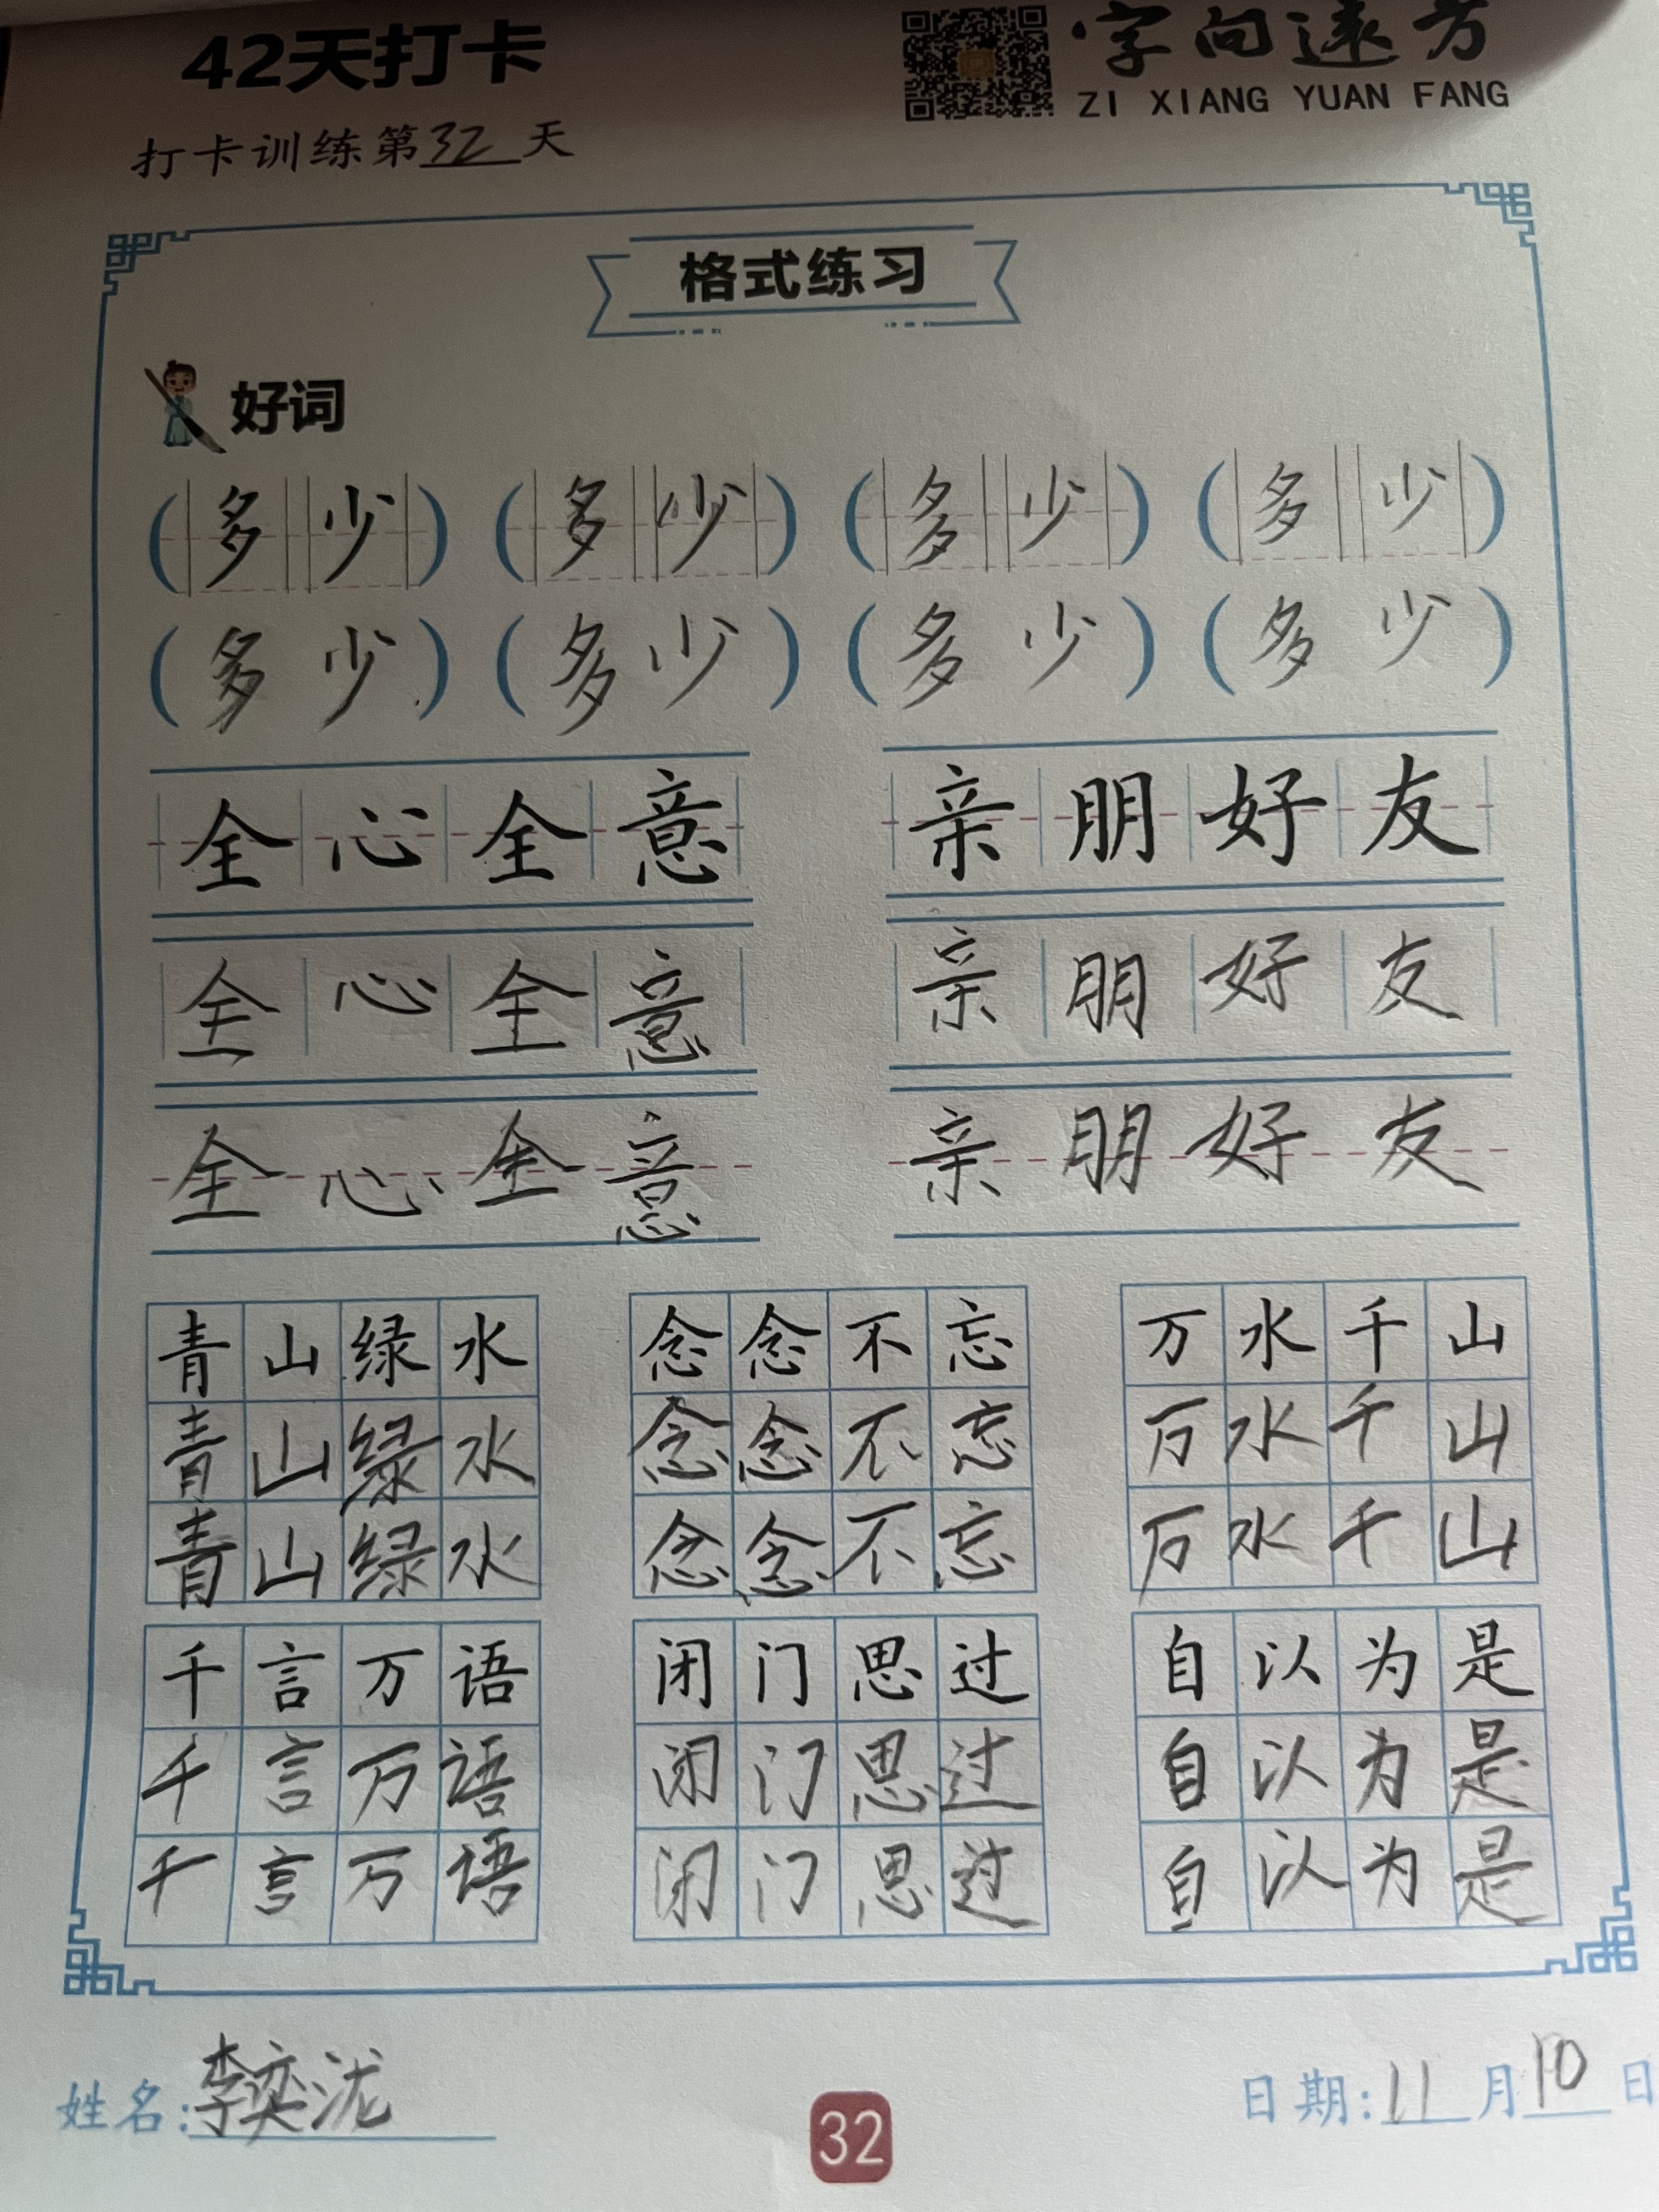 42天打卡
字向远方
ZI XIANG YUAN FANG
打卡训练第32天
格式练习
好词
(多少) (多少) (多少) (多少)
(多少) (多少) (多少) (多少)
全心全意 亲朋好友
全心全意 亲朋好友
全心全意 亲朋好友
青山绿水 念念不忘 万水千山
青山绿水 念念不忘 万水千山
青山绿水 念念不忘 万水千山
千言万语 闭门思过 自以为是
千言万语 闭门思过 自以为是
千言万语 闭门思过 自以为是
姓名:李奕泷 日期:11月10日
32